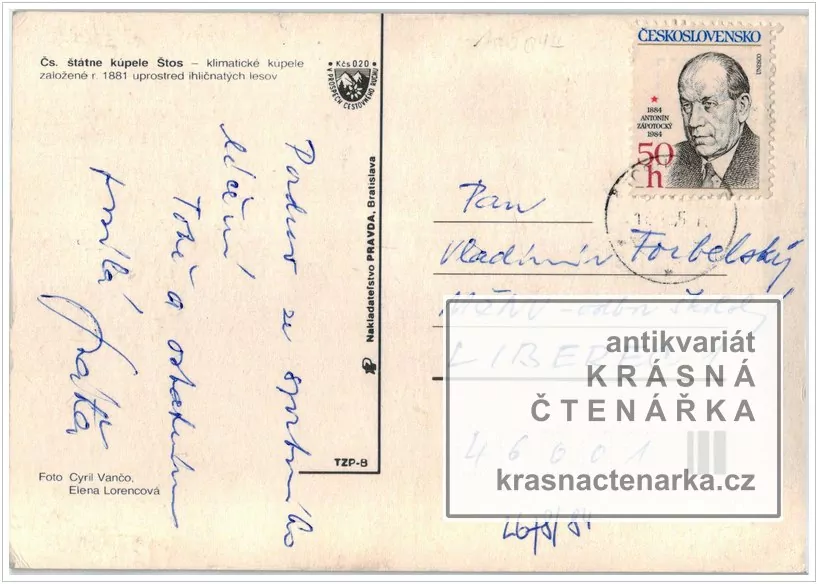 Čs. štátne kúpele Štos – klimatické kúpele
založené r. 1881 uprostred ihličnatých lesov
Kčs 0.20
V PROSPECH CESTOVNÉHO RUCHU
Pozdrav ze
léčení
Tobě a ostatním
Nakladateľstvo PRAVDA, Bratislava
TZP-B
Foto Cyril Vančo,
Elena Lorencová
ČESKOSLOVENSKO
1884
ANTONÍN
ZÁPOTOCKÝ
1984
50
h
Pan
Vladimír Forbelský
MěNV - odbor školský
LIBEREC 1
46001
antikvariát
KRÁSNÁ
ČTENÁŘKA
krasnactenarka.cz